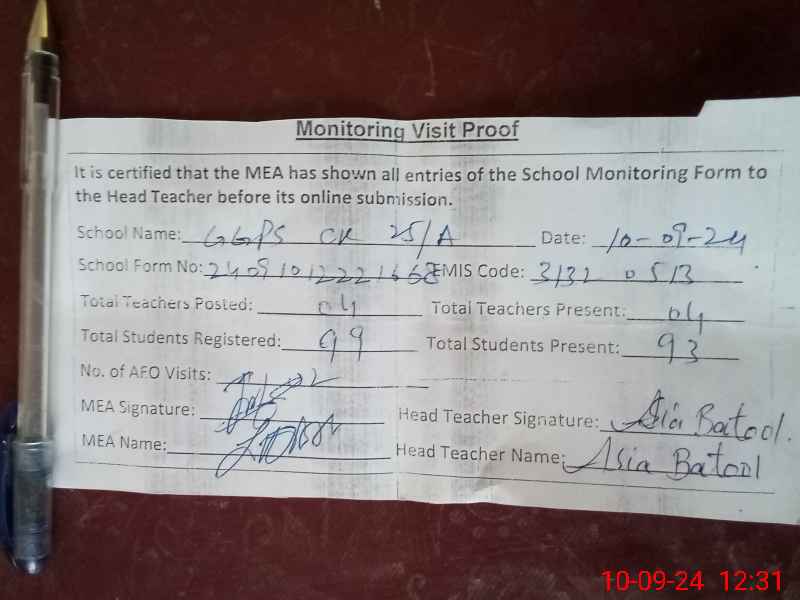 Monitoring Visit Proof
It is certified that the MEA has shown all entries of the School Monitoring Form to
the Head Teacher before its online submission.
School Name: GGPS CK 25/A Date: 10-09-24
School Form No: 24091012221668 EMIS Code: 3132 0513
Total Teachers Posted: 04 Total Teachers Present: 04
Total Students Registered: 99 Total Students Present: 93
No. of AEO Visits: 
MEA Signature: Head Teacher Signature: Asia Batool.
MEA Name: Head Teacher Name: Asia Batool
10-09-24 12:31